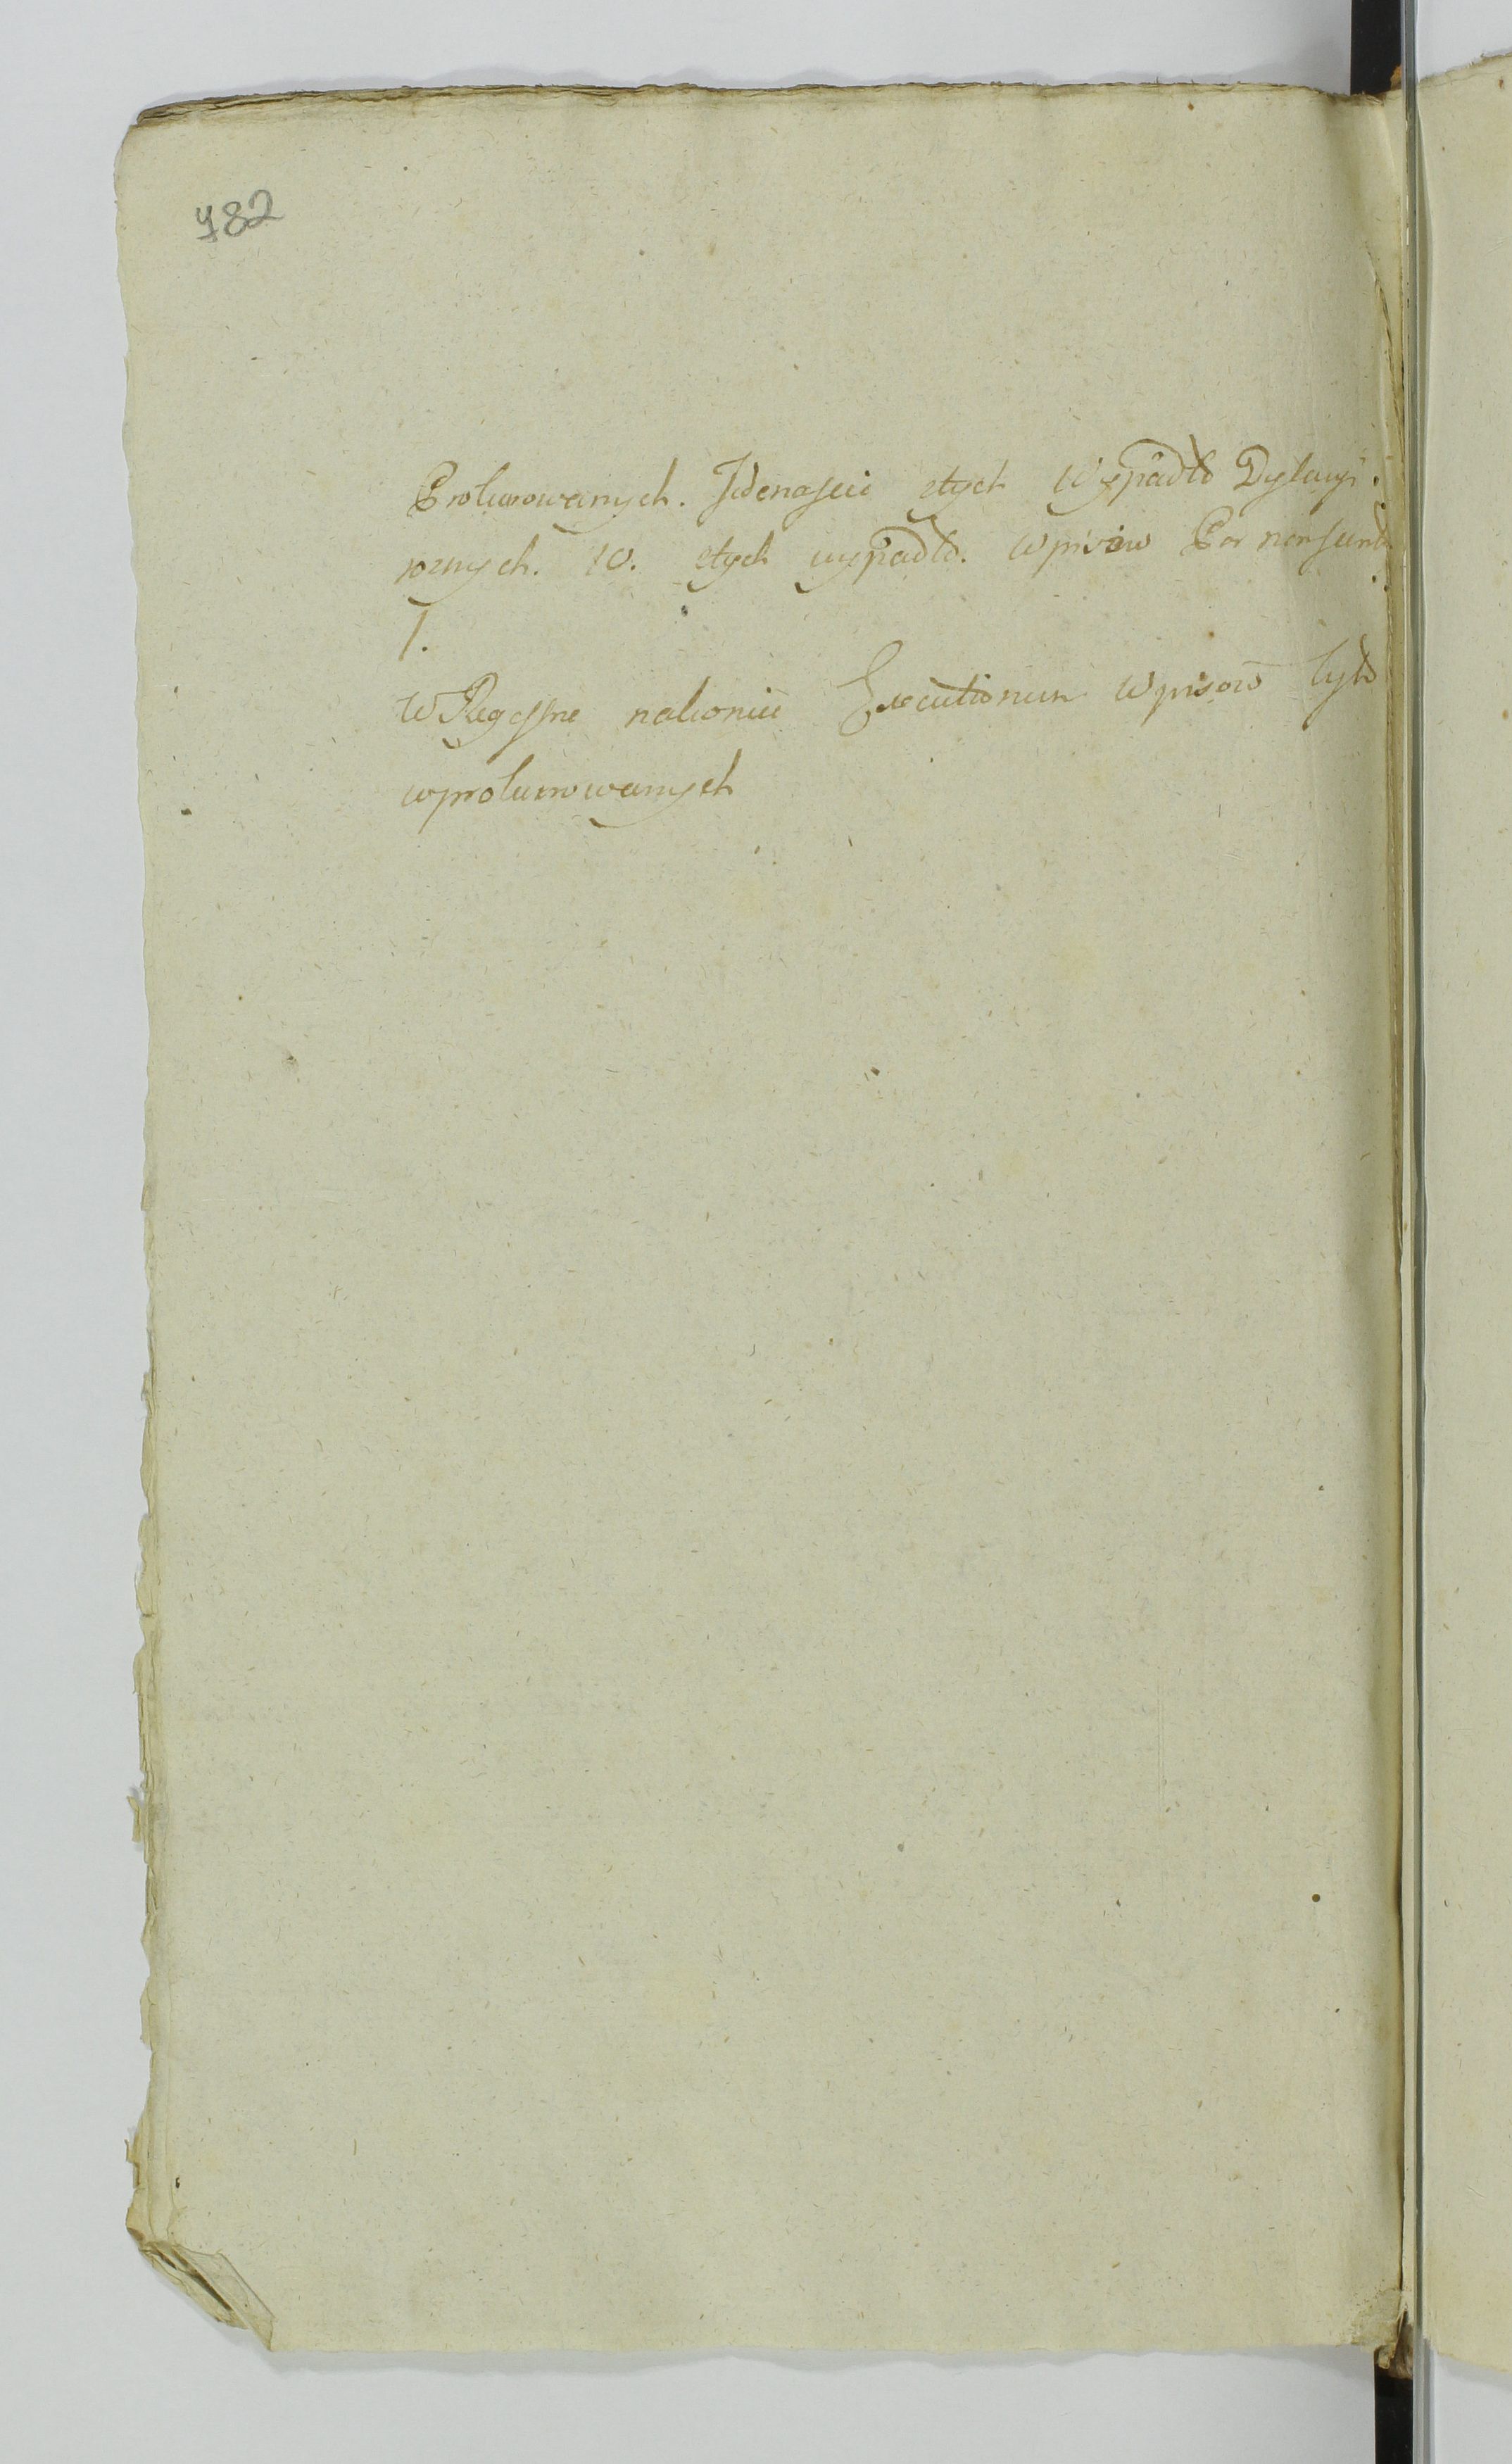 782
Prokurowanych. Jedenaście ztych Wypadło Dylacyi
roznych. 10. ztych wypadło. Wpisow Pro non sunt
1.
W Regestrze nakoniec Executionum Wpisow było
wprokurowanych